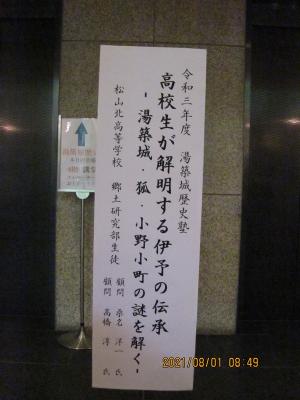 令和三年度　湯築城歴史塾
高校生が解明する伊予の伝承
-湯築城・狐・小野小町の謎を解く-
松山北高等学校　郷土研究部生徒
顧問　桑名　洋一　氏
顧問　高橋　淳　氏
2021/08/01 08:49